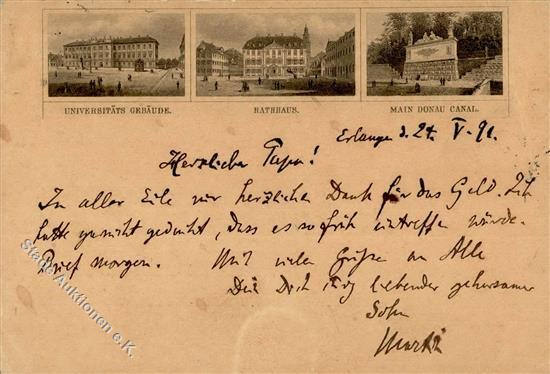 UNIVERSITÄTS GEBÄUDE. RATHHAUS. MAIN DONAU CANAL.
Erlangen d. 24. V. 91.
Herzlieber Papa!
In aller Eile nur herzlichen Dank für das Geld. Ich
hatte garnicht gedacht, dass es so früh eintreffen würde.
Brief morgen. Mit vielen Grüßen an Alle
Dein Dich liebender gehorsamer
Sohn
Stade Auktionen e.K.